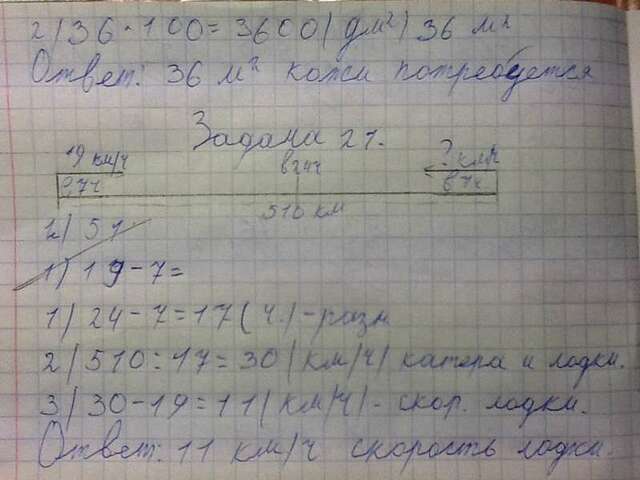 2) 36 · 100 = 3600 (дм²) 36 м²
Ответ: 36 м² кожи потребуется
Задача 21.
19 км/ч в 24ч ? км/ч
в 7ч
510 км
2) 51
1) 19 - 7 =
1) 24 - 7 = 17 (ч.) - разн
2) 510 : 17 = 30 (км/ч) катера и лодки.
3) 30 - 19 = 11 (км/ч) - скор. лодки.
Ответ: 11 км/ч скорость лодки.